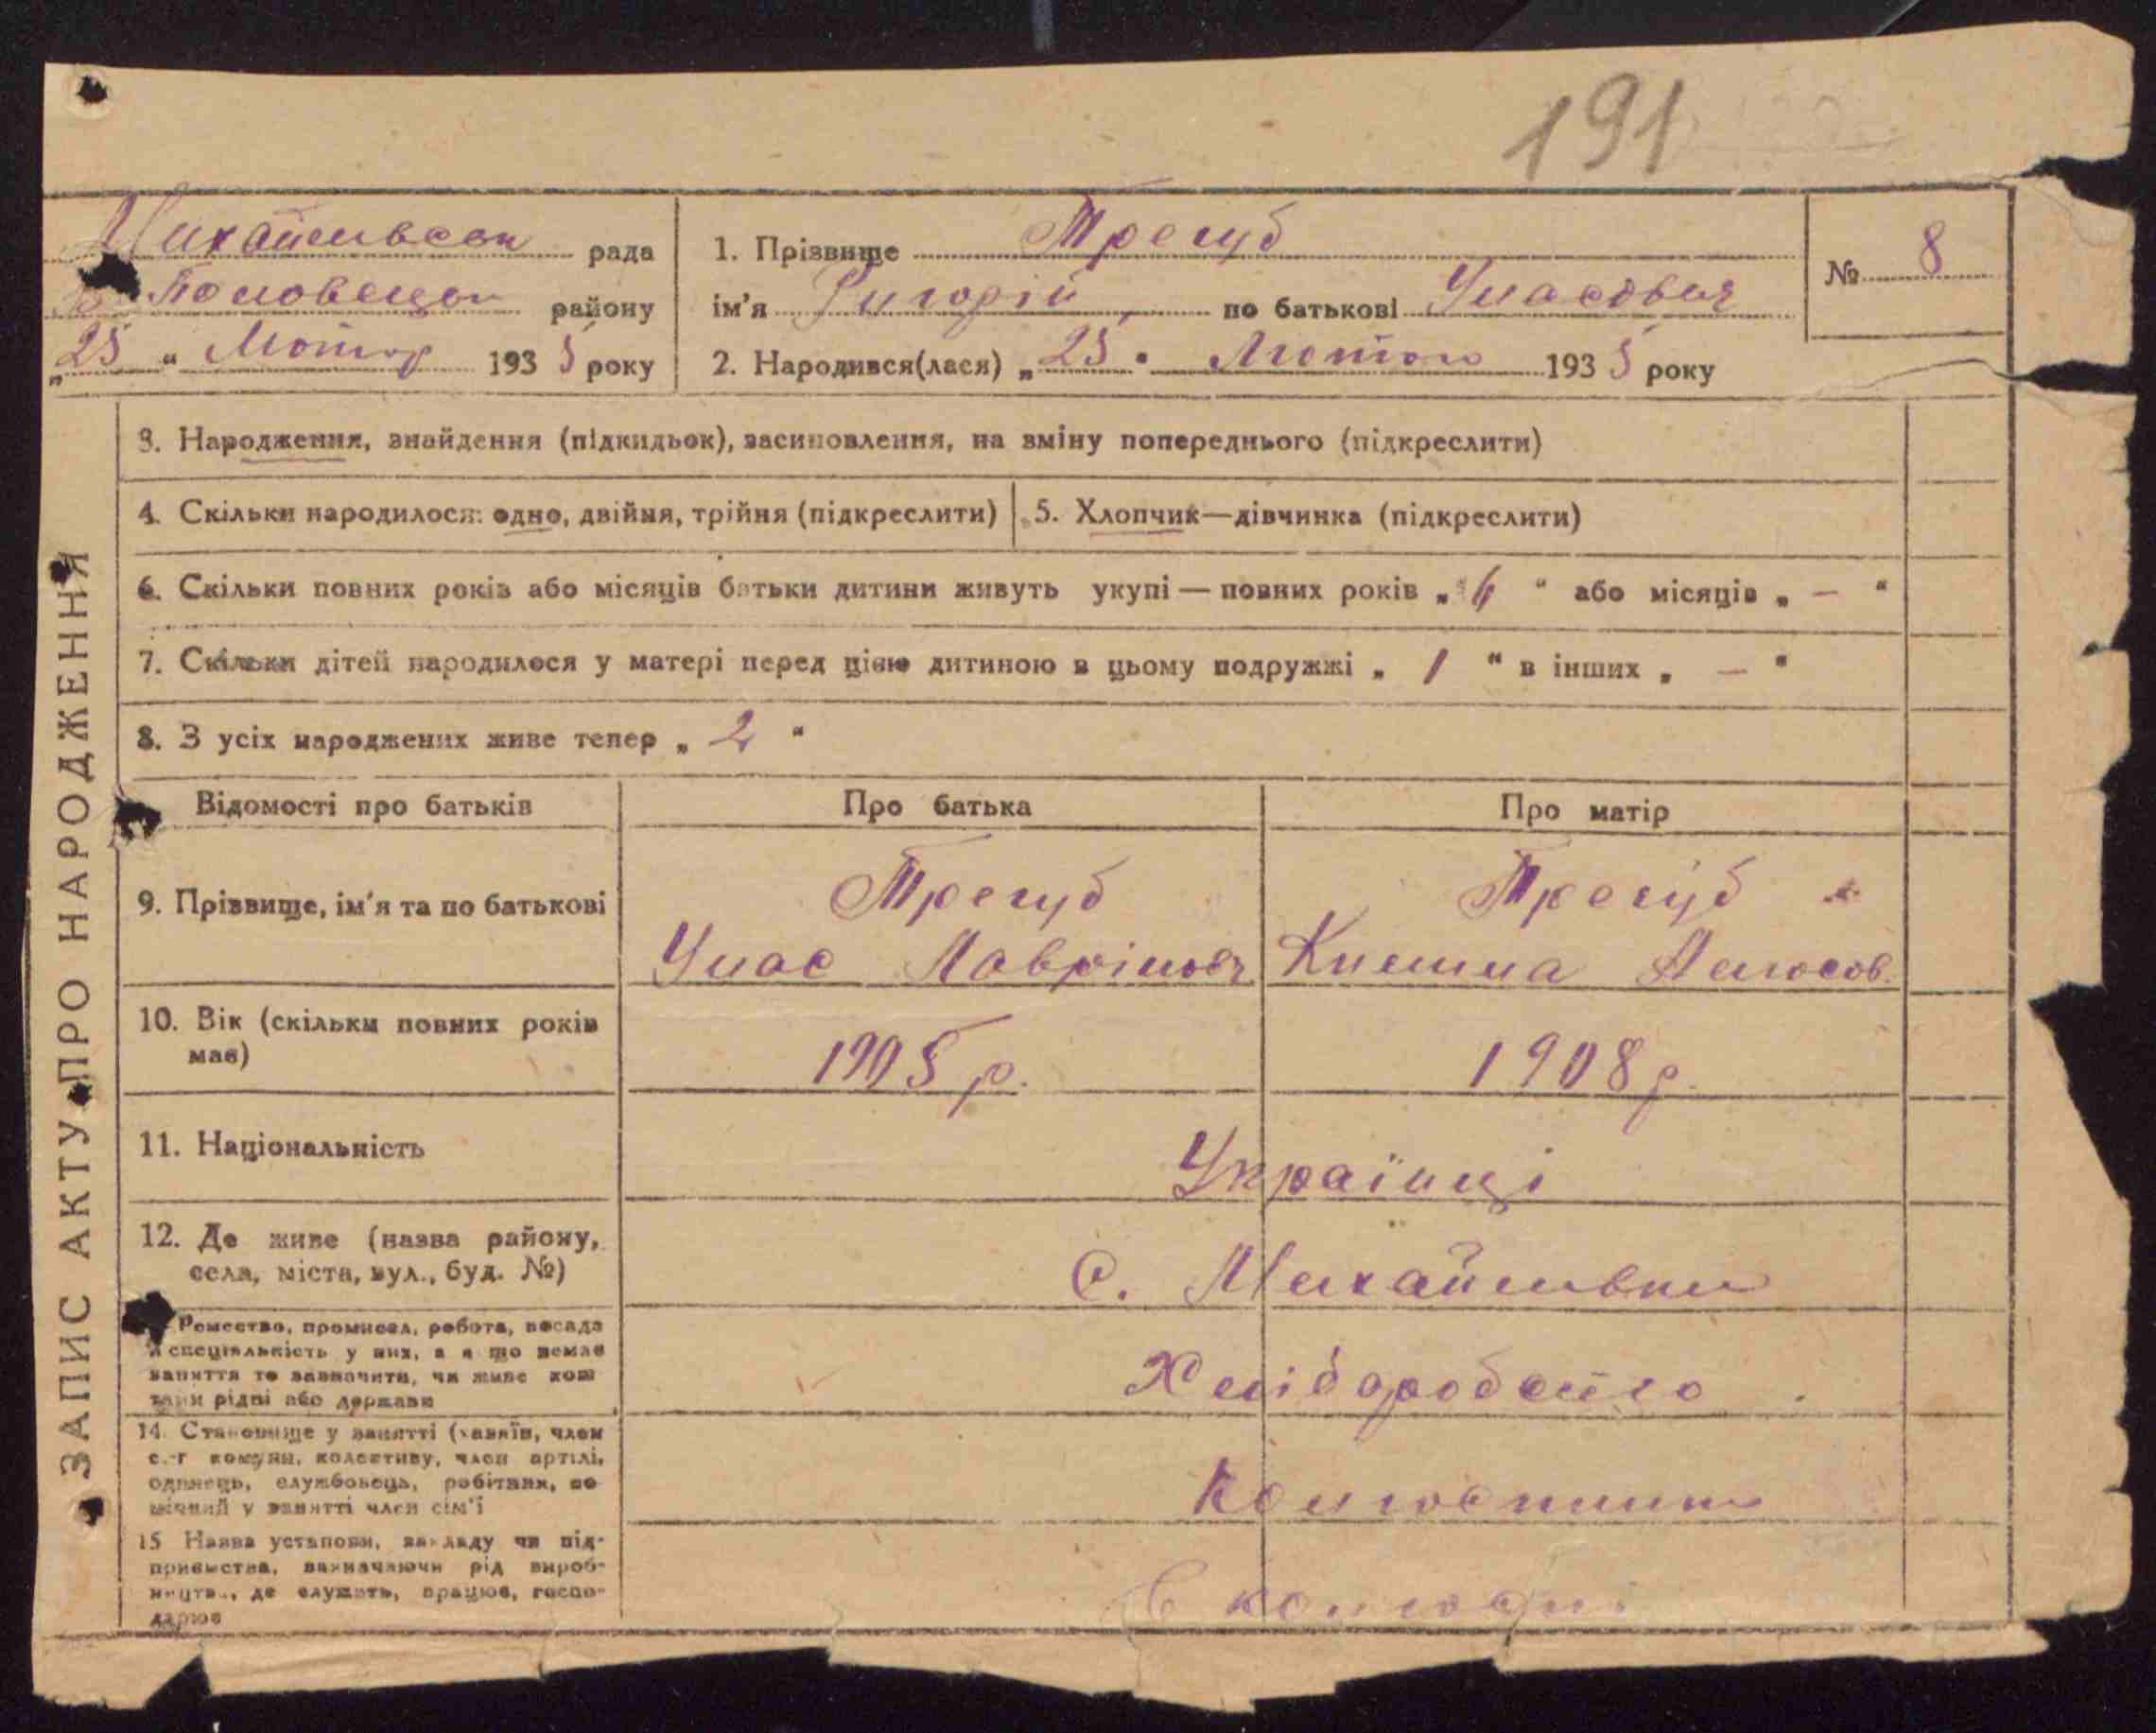 191
Михайлівськ рада
Половецьк району
„25“ Лютого 1935 року
1. Прізвище Трегуб
ім'я Григорій по батькові Уласович
2. Народився(лася) „25“ Лютого 1935 року
№ 8
ЗАПИС АКТУ ПРО НАРОДЖЕННЯ
3. Народження, знайдення (підкидьок), засиновлення, на зміну попереднього (підкреслити)
4. Скільки народилося: одно, двійня, трійня (підкреслити)
5. Хлопчик—дівчинка (підкреслити)
6. Скільки повних років або місяців батьки дитини живуть укупі — повних років „ “ або місяців „ — “
7. Скільки дітей народилося у матері перед цією дитиною в цьому подружжі „ 1 “ в інших „ — “
8. З усіх народжених живе тепер „ 2 “
Відомості про батьків
Про батька
Про матір
9. Прізвище, ім'я та по батькові
Трегуб
Улас
Трегуб
10. Вік (скільки повних років
має)
1905 р.
1908 р.
11. Національність
Українці
12. Де живе (назва району,
села, міста, вул., буд. №)
с. Михайлівки
Ремество, промисел, робота, посада
й спеціяльність у них, а якщо немає
заняття то зазначити, чи живе кош
тами рідні або держави
Хліборобство
14. Становище у занятті (хазяїн, член
с.-г комуни, колективу, член артілі,
одинець, службовець, робітник, по
мічний у занятті член сім'ї
Колгоспник
15 Назва установи, закладу чи під-
приємства, зазначаючи рід вироб-
ництва, де служить, працює, госпо-
дарює
В колгоспі